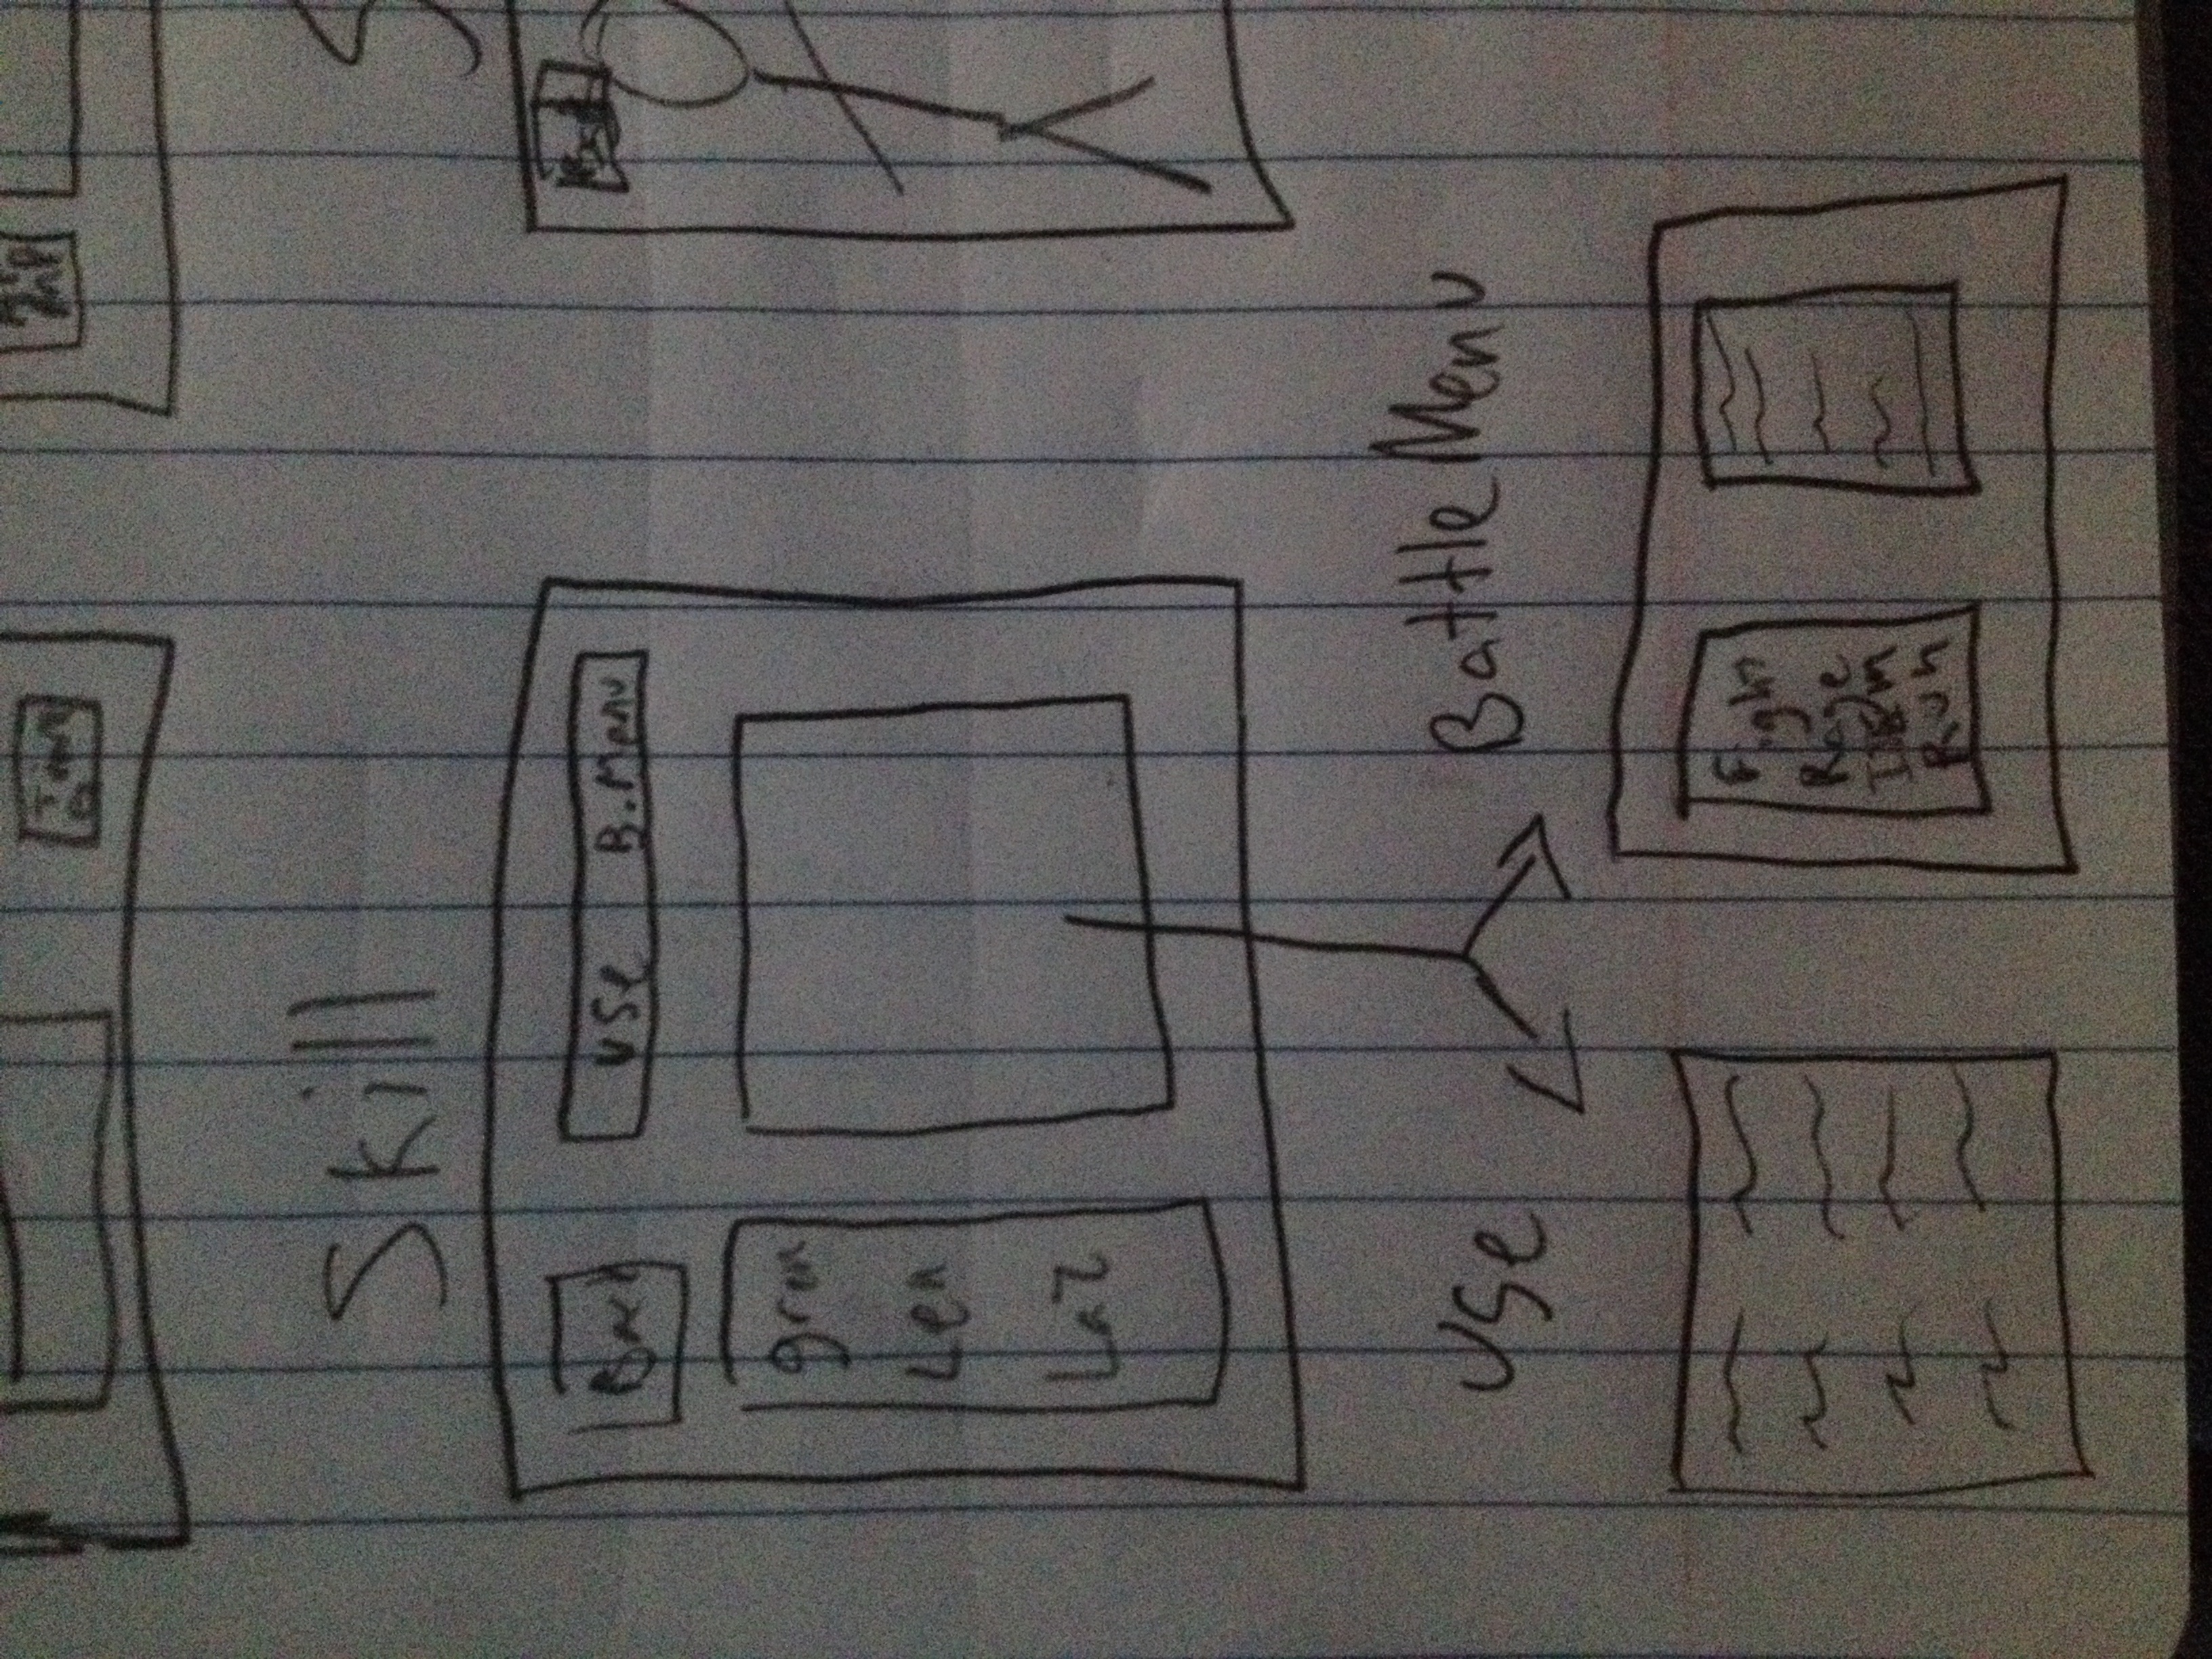 Skill
Back
USe B.Menu
gron
Len
Laz
USe
Battle Menu
Fight
Rage
ITEm
Run